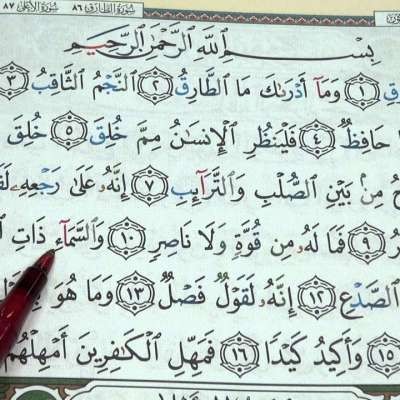 سُورَةُ الطَّارِقِ ٨٦ سُورَةُ الأَعْلَىٰ ٨٧
بِسْمِ اللَّهِ الرَّحْمَٰنِ الرَّحِيمِ
١ وَمَآ أَدْرَىٰكَ مَا الطَّارِقُ ٢ النَّجْمُ الثَّاقِبُ ٣
حَافِظٌ ٤ فَلْيَنظُرِ الْإِنسَٰنُ مِمَّ خُلِقَ ٥ خُلِقَ
مِنۢ بَيْنِ الصُّلْبِ وَالتَّرَآئِبِ ٧ إِنَّهُۥ عَلَىٰ رَجْعِهِۦ
٩ فَمَا لَهُۥ مِن قُوَّةٍ وَلَا نَاصِرٍ ١٠ وَالسَّمَآءِ ذَاتِ
الصَّدْعِ ١٢ إِنَّهُۥ لَقَوْلٌ فَصْلٌ ١٣ وَمَا هُوَ
١٥ وَأَكِيدُ كَيْدًا ١٦ فَمَهِّلِ الْكَٰفِرِينَ أَمْهِلْهُمْ